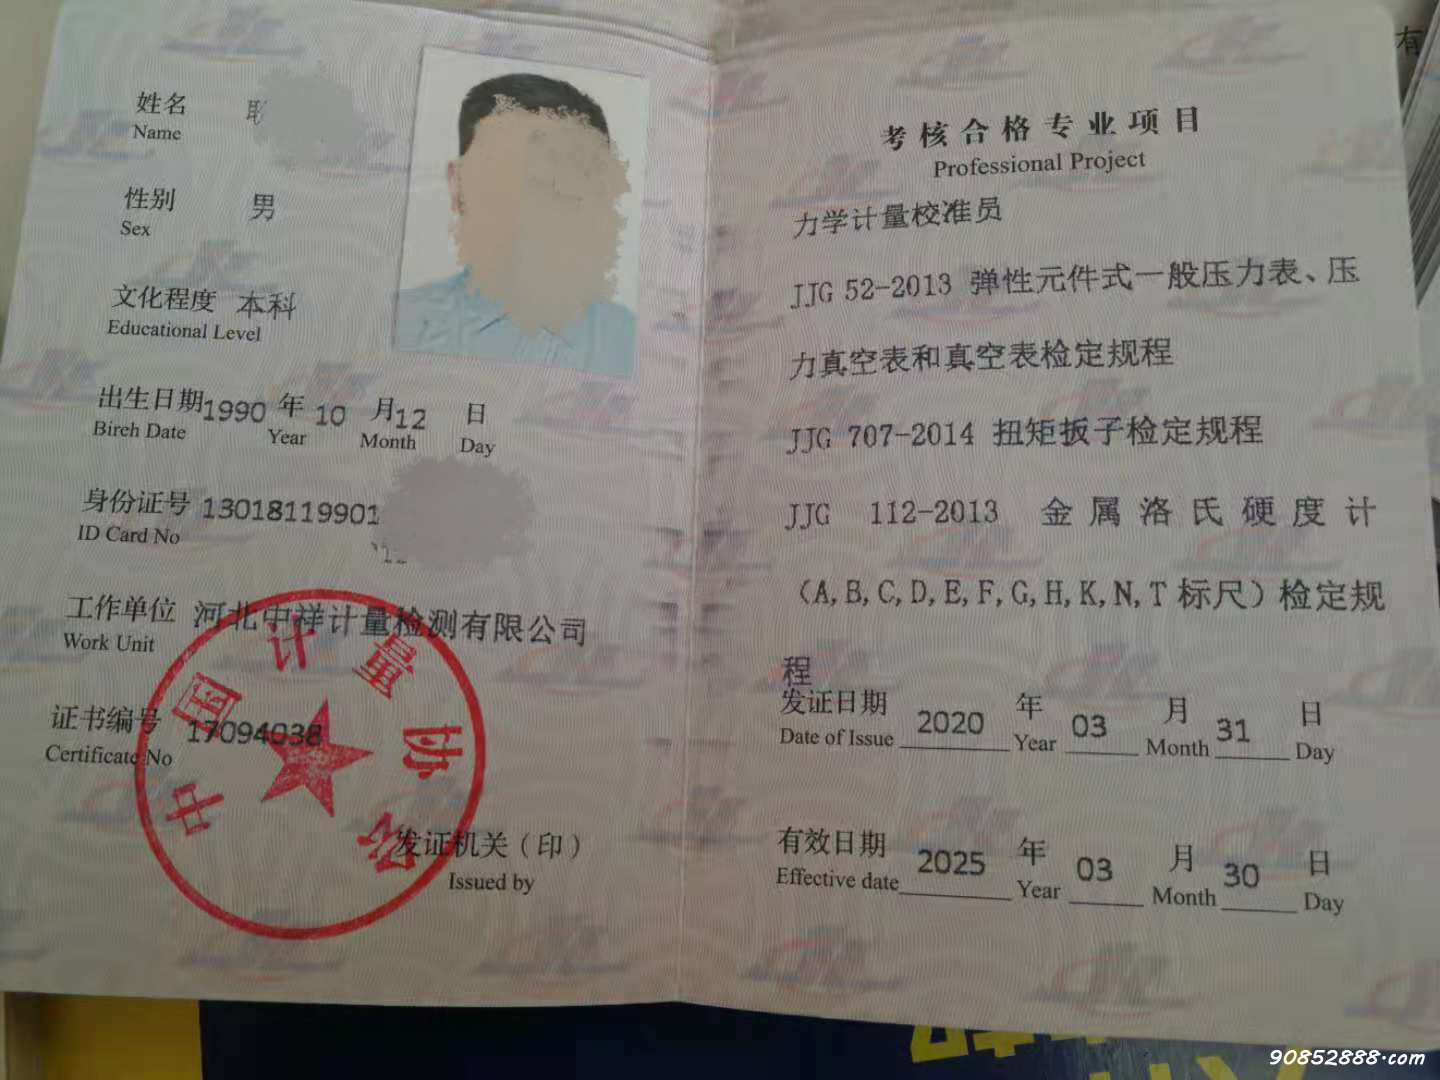 姓名
Name
性别 男
Sex
文化程度 本科
Educational Level
出生日期 1990 年 10 月 12 日
Birch Date Year Month Day
身份证号 13018119901
ID Card No
工作单位 河北中祥计量检测有限公司
Work Unit
证书编号 17094038
Certificate No
中国计量协会
发证机关（印）
Issued by
考核合格专业项目
Professional Project
力学计量校准员
JJG 52-2013 弹性元件式一般压力表、压
力真空表和真空表检定规程
JJG 707-2014 扭矩扳子检定规程
JJG 112-2013 金属洛氏硬度计
（A,B,C,D,E,F,G,H,K,N,T 标尺）检定规
程
发证日期 2020 年 03 月 31 日
Date of Issue Year Month Day
有效日期 2025 年 03 月 30 日
Effective date Year Month Day
有
90852888.com